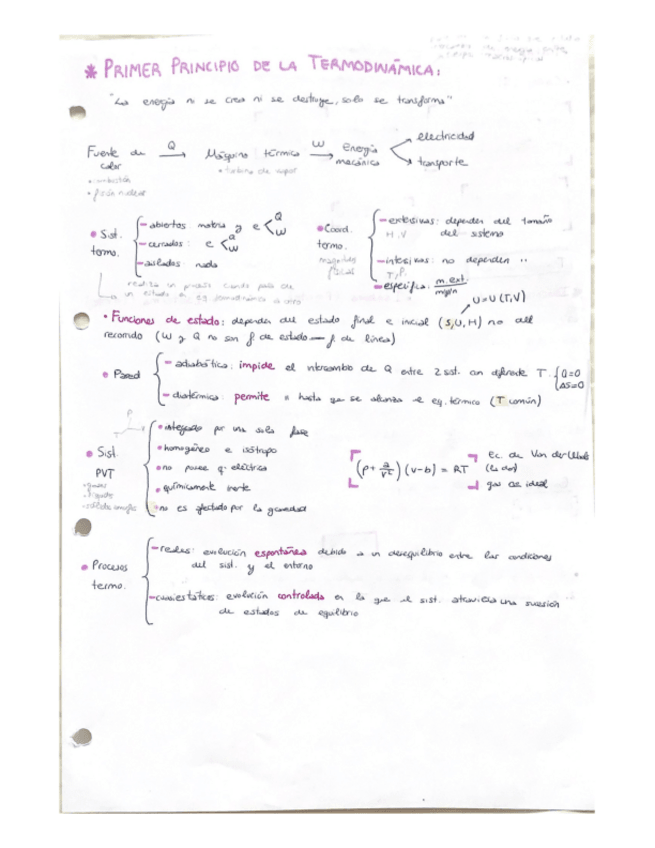 * PRIMER PRINCIPIO DE LA TERMODINÁMICA:
"La energía ni se crea ni se destruye, solo se transforma"
Fuente de calor → Q → Máquina térmica → W → energía mecánica < electricidad
transporte
• combustión
• turbina de vapor
• fisión nuclear
• Sist. termo.
- abiertos: materia y e < Q W
- cerrados: e < Q W
- aislados: nada
realiza un proceso cuando pasa de
un estado en eq termodinámico a otro
• Coord. termo.
magnitudes físicas
- extensivas: dependen del tamaño del sistema
H, V
- intensivas: no dependen "
T, P.
- específica: m.ext. / m
U=U(T,V)
• Funciones de estado: depende del estado final e inicial (S,U,H) no del
recorrido (W y Q no son f de estado — f de línea)
• Pared
- adiabática: impide el intercambio de Q entre 2 sist. con diferente T. { Q=0
ΔS=0
- diatérmica: permite " hasta que se alcanza el eq. térmico (T común)
• Sist. PVT
• gases
• líquidos
• sólidos simples
• integrado por una sola fase
• homogéneo e isótropo
• no posee q eléctrica
• químicamente inerte
• no es afectado por la gravedad
(P + a/v²)(v-b) = RT
ec. de Van der Waals
gas no ideal
• Procesos termo.
- reales: evolución espontánea debido a un desequilibrio entre las condiciones
del sist. y el entorno
- cuasiestáticos: evolución controlada en la que el sist. atraviesa una sucesión
de estados de equilibrio